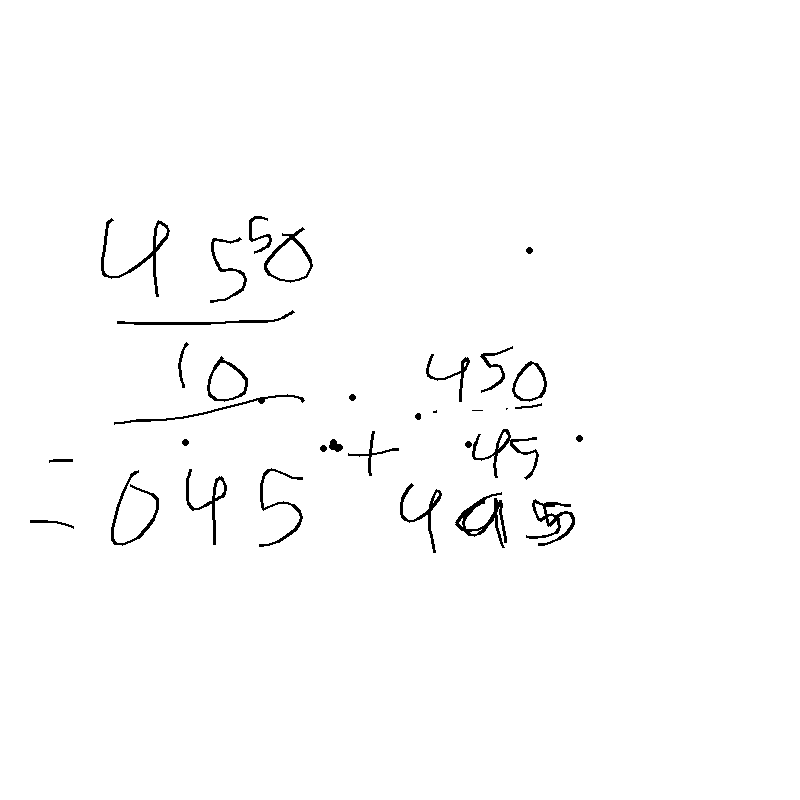 4 5 5 0
10
= 045
450
+ 45
495